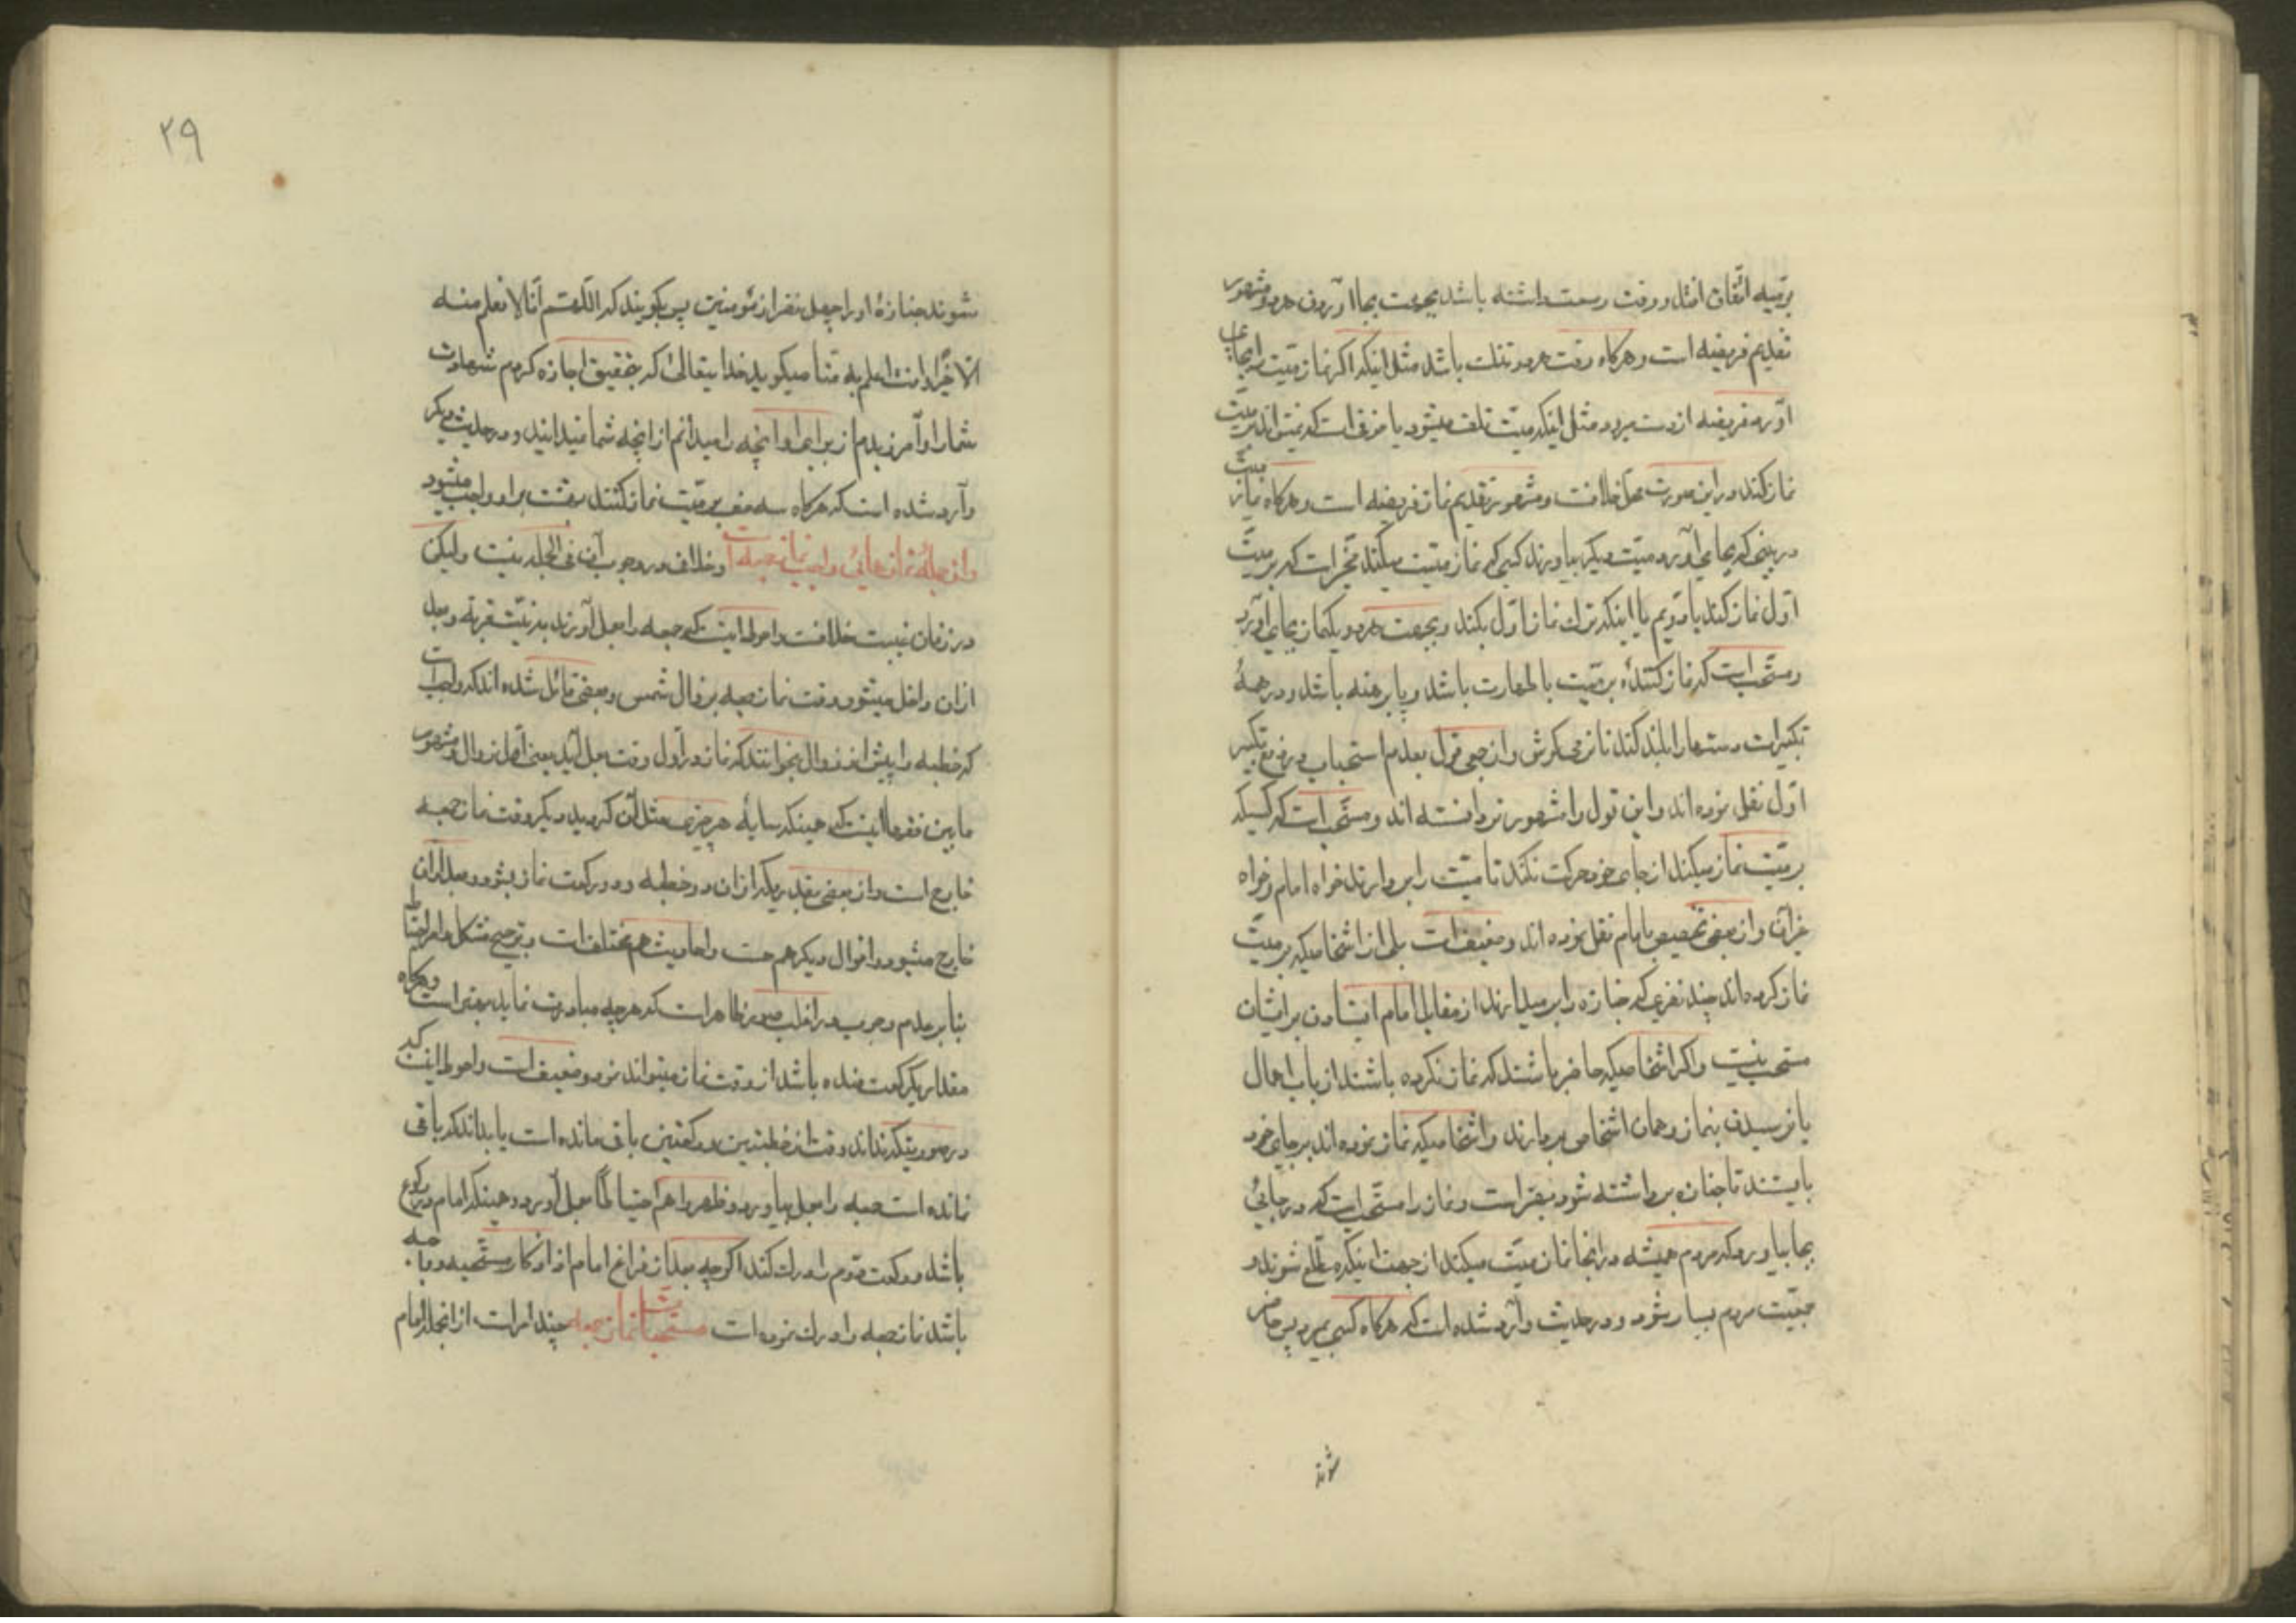 برتبه اتفاق افتد و وقت وسعت داشته باشد بجهت بجا آوردن هر دو مشهور
تقدیم فریضه است و هرگاه وقت هر دو تنك باشد مثل اینکه اگر نماز میّت را بجای
آورد فریضه از دست میرود مثل اینکه میّت تلف میشود یا خوفی است که نمیتواند بر میّت
نماز کند در این صورت محل خلافت و مشهور تقدیم نماز فریضه است و هرگاه نماز میّت
در بینی که بجای آورد میّت دیگر بیاورند کسی که نماز میّت میکند مخیّر است که بر میّت
اوّل نماز کند یا دویم یا اینکه ترك نماز اوّل بکند و بجهت هر دو یکنماز بجای آورد
و مستحب است که نماز کنندۀ بر میّت با طهارت باشد و پا برهنه باشد و در همۀ
تکبیرات دستها را بلند کند تا نزد گوش و از جمعی قول بعدم استحباب در غیر تکبیر
اوّل نقل نموده اند و این قول را مشهور تر دانسته اند و مستحب است که کسیکه
بر میّت نماز میکند از جای خود حرکت نکند تا میّت را بردارند خواه امام و خواه
غیر آن و از بعضی تخصیص بامام نقل نموده اند و ضعیف است بلی از اشخاصیکه بر میّت
نماز کرده اند چند نفری که جنازه را بر میدارند از مقابل امام ایستادن بر ایشان
مستحب نیست و اگر اشخاصیکه حاضر باشند که نماز نکرده باشند از باب اهمال
یا نرسیدن بنماز و همان اشخاص بردارند و اشخاصیکه نماز نموده اند بر جای خود
بایستند تا جنازه برداشته شود بهتر است و نماز را مستحب است که در جائی
بجا بیاورد که مردم همیشه در آنجا نماز میّت میکنند از جهت اینکه مطّلع شوند و
جمعیّت مردم بسیار شود و در حدیث وارد شده است که هرگاه کسی بمیرد پس حاضر
شوند
۲۹
شوند جنازۀ او را چهل نفر از مؤمنین پس بگویند که اللّهمّ انّا لا نعلم منه
الّا خیرا و انت اعلم به منّا میگوید خدایتعالی که بتحقیق اجازه کردم شهادت
شما را و آمرزیدم از برای او آنچه را میدانم از آنچه شما نمیدانید و در حدیث دیگر
وارد شده است که هرگاه سه صف بر میّت نماز کنند بهشت بر او واجب میشود
و از جملۀ نمازهای واجب نماز جمعه است و خلاف در وجوب آن فی الجمله نیست و لیکن
در زمان غیبت خلافت و احوط اینست که جمعه را بعمل آورند بنیّت قربة و بعد
از ان داخل میشود وقت نماز جمعه بزوال شمس و بعضی قائل شده اند که واجب است
که خطبه را پیش از زوال بخوانند که نماز در اوّل وقت بعمل آید یعنی اوّل زوال و مشهور
مابین فقها اینست که همینکه سایه هر چیزی مثل آن گردید دیگر وقت نماز جمعه
خارج است و از بعضی بقدریکه اذان و دو خطبه و دو رکعت نماز بشود و بعد از آن
خارج میشود و اقوال دیگر هم هست و احادیث هم مختلف است و ترجیح مشکل و امر احتیاط
بنابر عدم وجوب در اغلب صور ظاهر است که هر چه مبادرت نماید بهتر است و هرگاه
مقدار یکرکعت مانده باشد از وقت نماز میتواند نمود و ضعیف است و احوط اینست که
در صورتیکه نداند وقت از خطبتین و رکعتین باقی مانده است یا بداند که باقی
نمانده است جمعه را بعمل بیاورد و ظهر را هم احتیاطاً بعمل آورد و همینکه امام در رکوع
باشد و رکعت دوّم را درك کند اگر چه بعد از فراغ امام از اذکار مستحبه و واجبه
باشد نماز جمعه را درك نموده است مستحبات نماز جمعه چند امر است از آنجمله امام